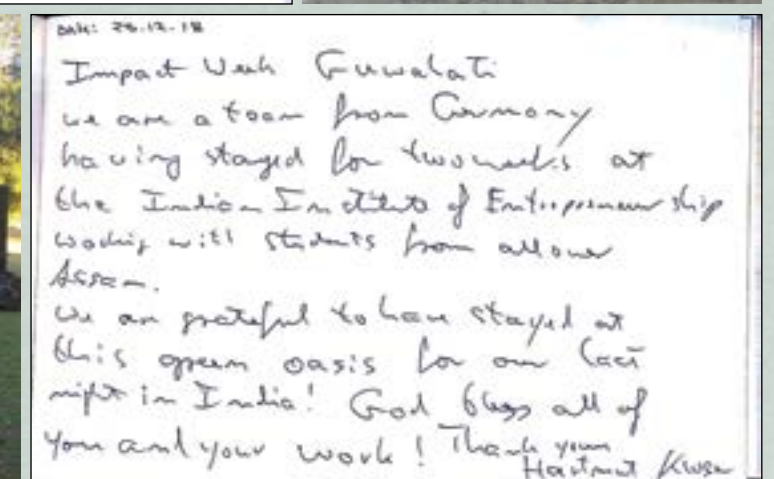 Date: 28.12.18
Impact Week Guwahati
we are a team from Germany
having stayed for two weeks at
the Indian Institute of Entrepreneurship
working with students from all over
Assam.
We are grateful to have stayed at
this green oasis for our last
night in India! God bless all of
you and your work! Thank you
Hartmut